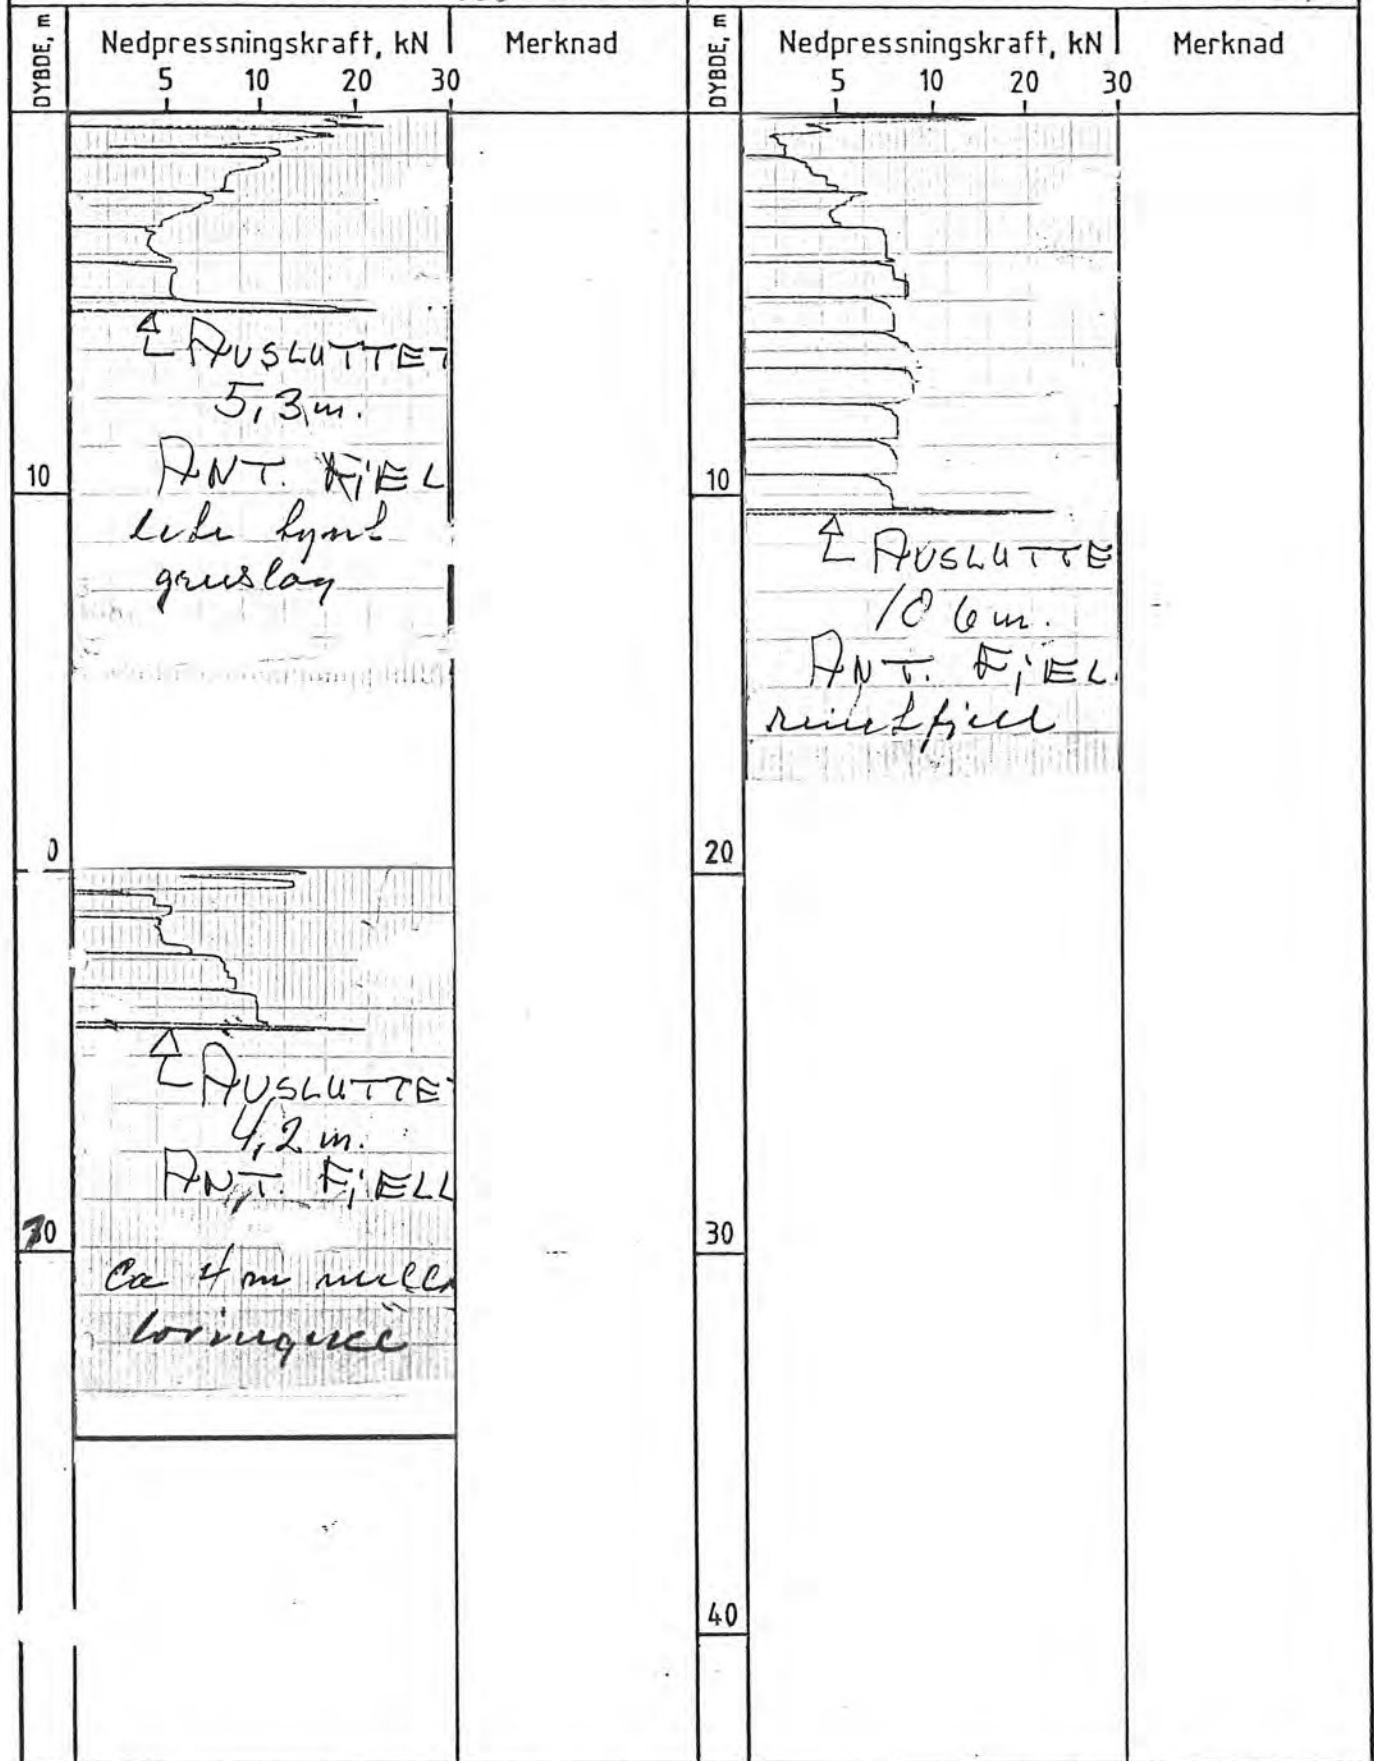 DYBDE, m
Nedpressningskraft, kN
5 10 20 30
Merknad
AVSLUTTET
5,3 m.
ANT. FjEL
gruslag
10
0
AVSLUTTE
4,2 m.
ANT. FjELL
10
Ca 4 m
DYBDE, m
Nedpressningskraft, kN
5 10 20 30
Merknad
10
AVSLUTTE
10 6 m.
ANT. FjEL
20
30
40